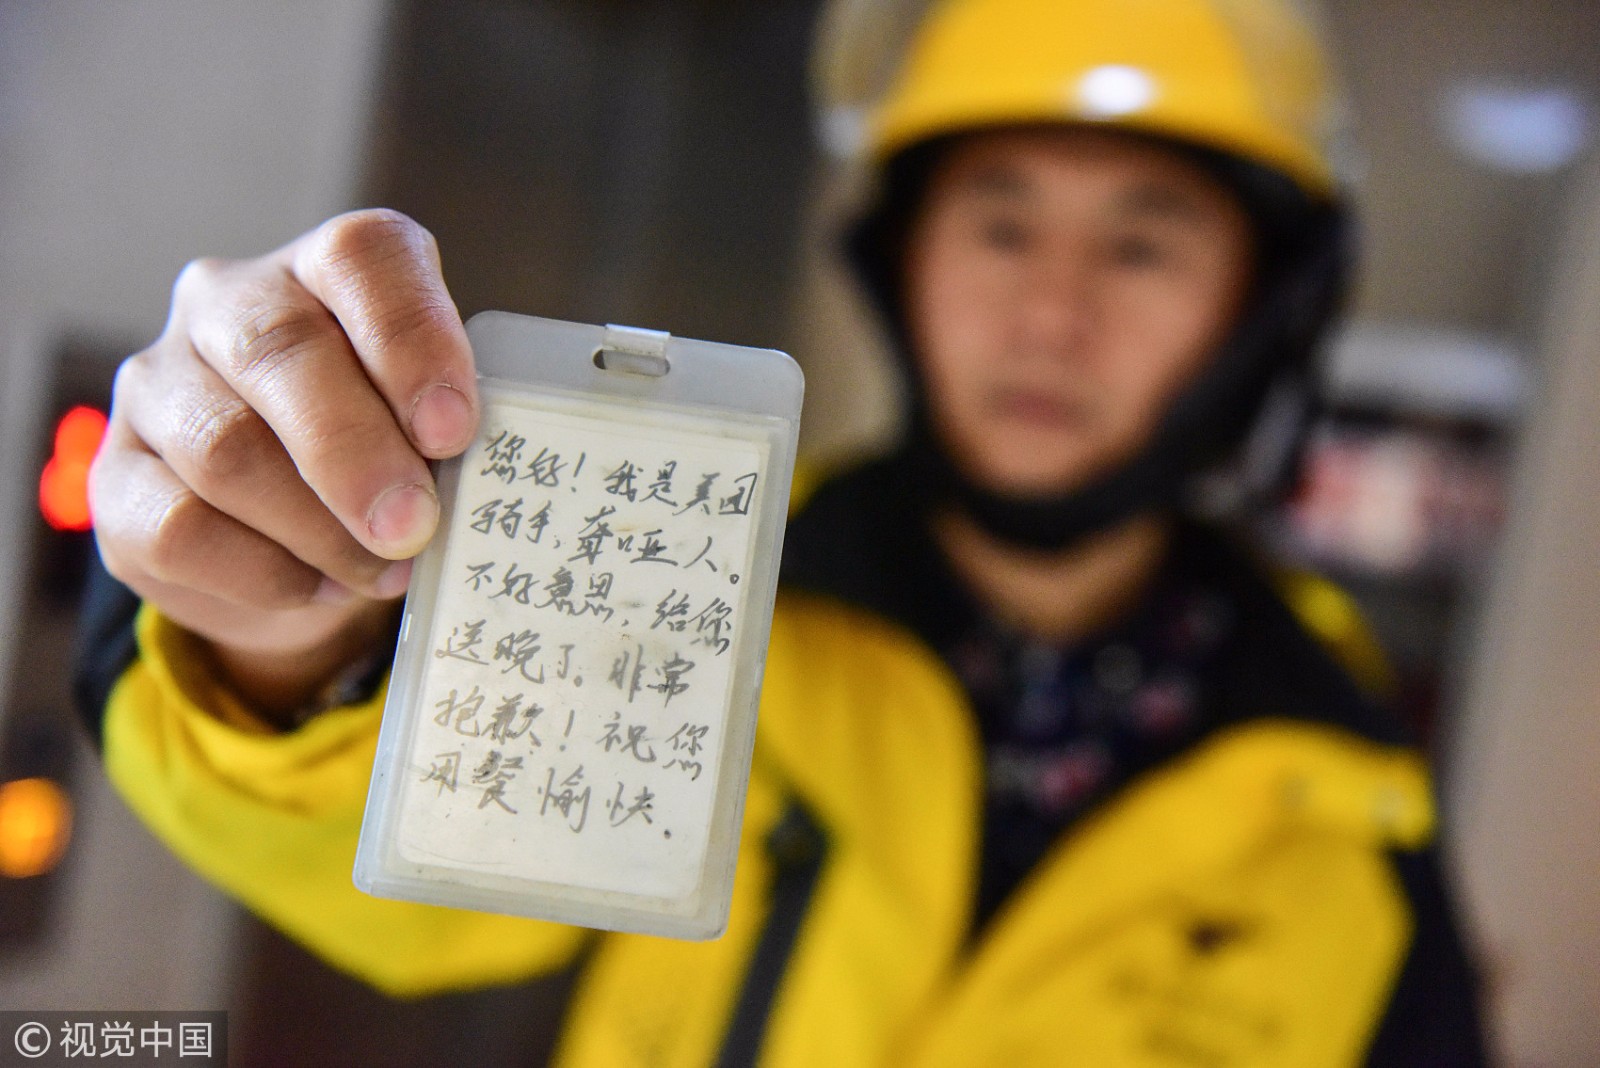 您好！我是美团
骑手，聋哑人。
不好意思，给您
送晚了。非常
抱歉！祝您
用餐愉快.
© 视觉中国